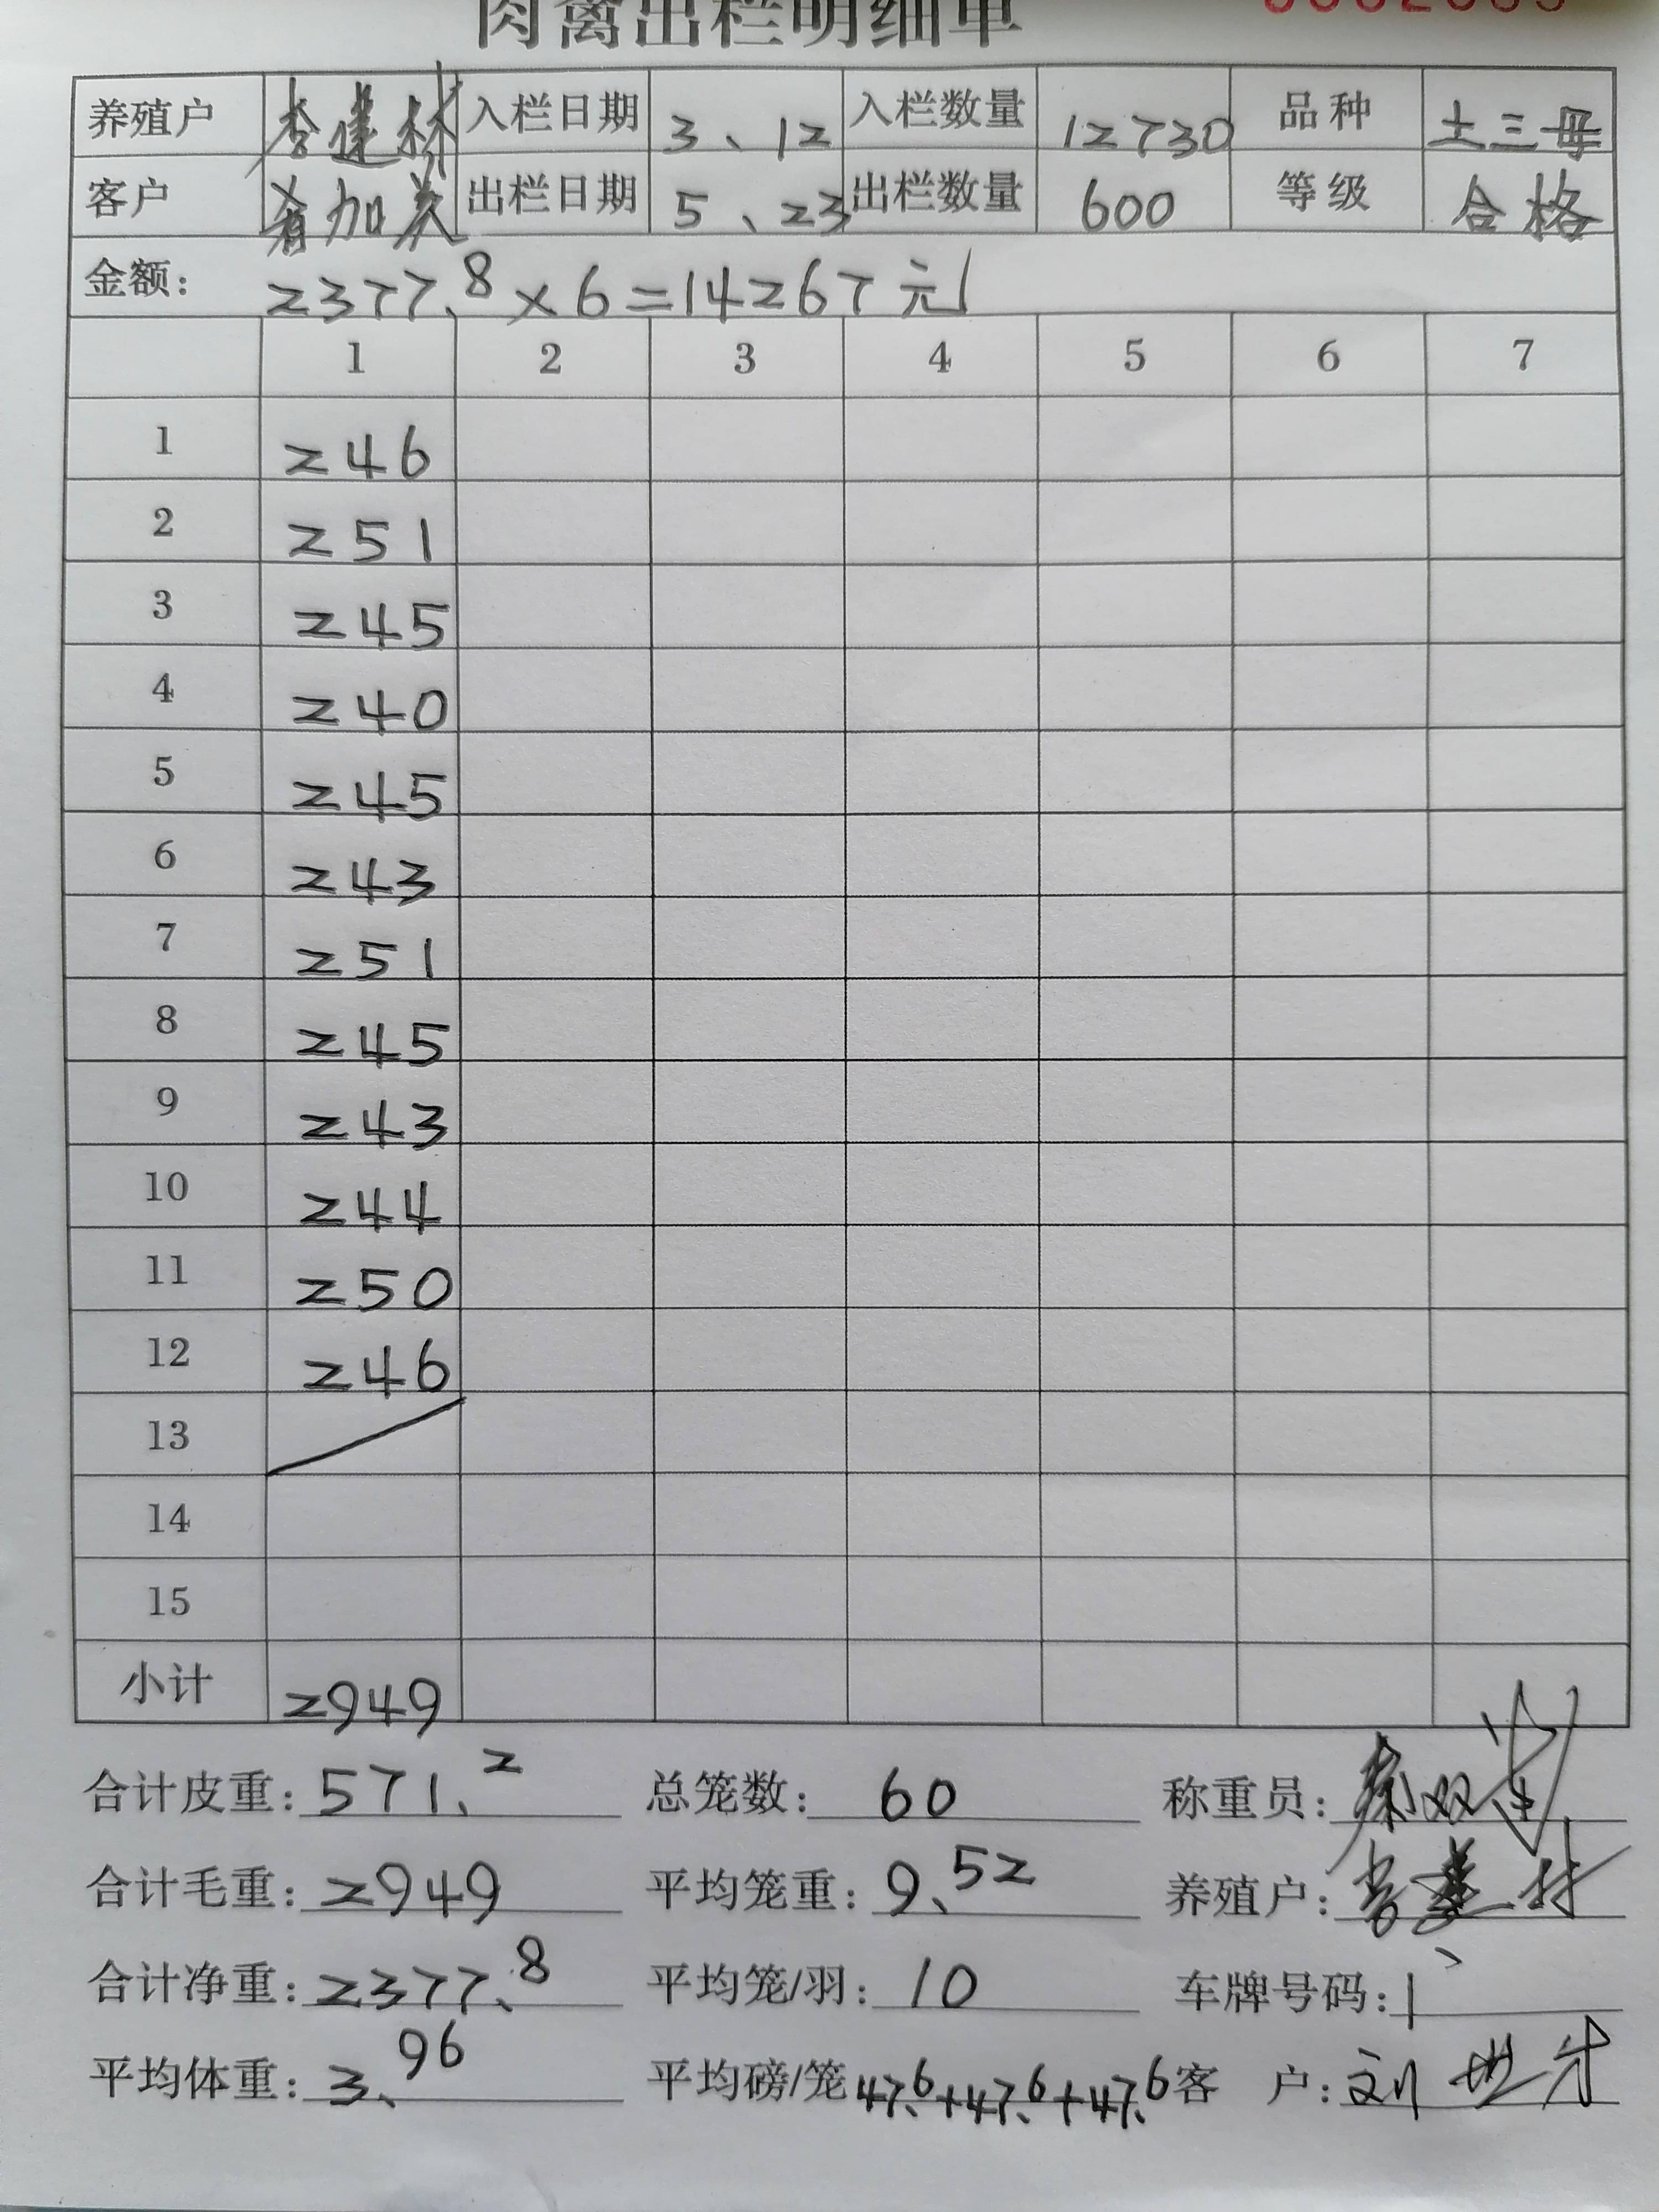 肉禽出栏明细单
养殖户 李建林 入栏日期 3、12 入栏数量 12730 品种 土三母
客户 加 出栏日期 5、23 出栏数量 600 等级 合格
金额: 2377.8×6=14267元
1 2 3 4 5 6 7
1 246
2 251
3 245
4 240
5 245
6 243
7 251
8 245
9 243
10 244
11 250
12 246
13
14
15
小计 2949
合计皮重: 571.2 总笼数: 60 称重员: 秦双
合计毛重: 2949 平均笼重: 9.52 养殖户: 李建林
合计净重: 2377.8 平均笼/羽: 10 车牌号码:
平均体重: 3.96 平均磅/笼 47.6+47.6+47.6 客 户: 刘